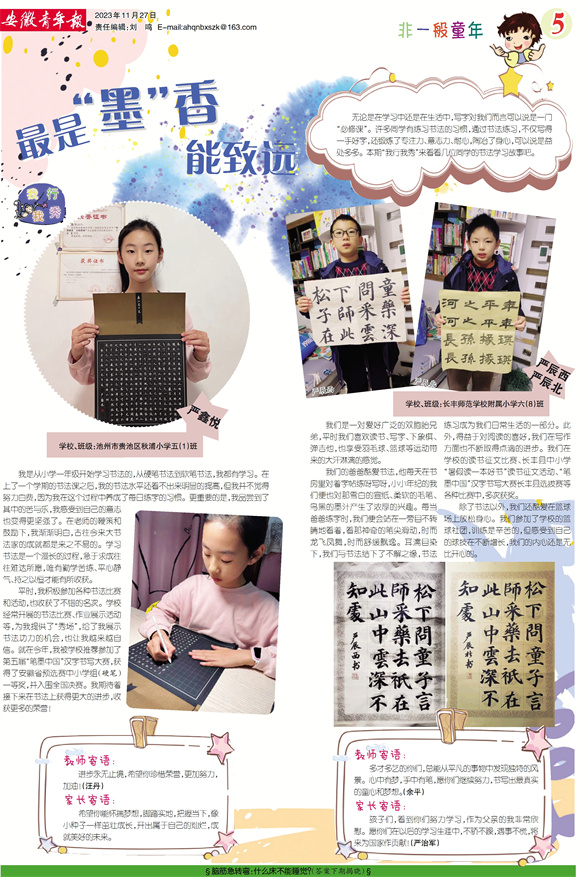 安徽青年报
2023年11月27日
责任编辑:刘 鸣 E-mail:ahqnbxszk@163.com
非一般童年
5
最是“墨”香
能致远
我行
我秀
无论是在学习中还是在生活中,写字对我们而言可以说是一门
“必修课”。许多同学有练习书法的习惯,通过书法练习,不仅写得
一手好字,还锻炼了专注力、意志力、耐心,陶冶了身心,可以说是益
处多多。本期“我行我秀”来看看几位同学的书法学习故事吧。
荣誉证书
获奖证书
严鑫悦
学校、班级:池州市贵池区秋浦小学五(1)班
我是从小学一年级开始学习书法的,从硬笔书法到软笔书法,我都有学习。在
上了一个学期的书法课之后,我的书法水平还看不出来明显的提高,但我并不觉得
努力白费,因为我在这个过程中养成了每日练字的习惯。更重要的是,我品尝到了
其中的苦与乐,我感受到自己的意志
也变得更坚强了。在老师的鞭策和
鼓励下,我渐渐明白,古往今来大书
法家的成就都是来之不易的。学习
书法是一个漫长的过程,急于求成往
往难达所愿,唯有勤学苦练、平心静
气,持之以恒才能有所收获。
平时,我积极参加各种书法比赛
和活动,也收获了不错的名次。学校
经常开展的书法比赛、作业展示活动
等,为我提供了“秀场”,给了我展示
书法功力的机会,也让我越来越自
信。就在今年,我被学校推荐参加了
第五届“笔墨中国”汉字书写大赛,获
得了安徽省预选赛中小学组(硬笔)
一等奖,并入围全国决赛。我期待着
接下来在书法上获得更大的进步,收
获更多的荣誉!
教师寄语:
进步永无止境,希望你珍惜荣誉,更加努力,
加油!(汪丹)
家长寄语:
希望你能怀揣梦想,脚踏实地,把握当下,像
小种子一样茁壮成长,开出属于自己的灿烂,成
就美好的未来。
松下問童
子師采藥
在此雲深
严辰西
河之平車
河之平車
長孫振瑛
長孫振瑛
严辰北
严辰西
严辰北
学校、班级:长丰师范学校附属小学六(8)班
我们是一对爱好广泛的双胞胎兄
弟,平时我们喜欢读书、写字、下象棋、
弹吉他,也享受羽毛球、篮球等运动带
来的大汗淋漓的感觉。
我们的爸爸酷爱书法,他每天在书
房里对着字帖练呀写呀,小小年纪的我
们便也对那雪白的宣纸、柔软的毛笔、
乌黑的墨汁产生了浓厚的兴趣。每当
爸爸练字时,我们便会站在一旁目不转
睛地看着,看那神奇的笔尖舞动,时而
龙飞凤舞,时而舒缓飘逸。耳濡目染
下,我们与书法结下了不解之缘,书法
练习成为我们日常生活的一部分。此
外,得益于对阅读的喜好,我们在写作
方面也不断取得点滴的进步。我们在
学校的读书征文比赛、长丰县中小学
“暑假读一本好书”读书征文活动、“笔
墨中国”汉字书写大赛长丰县选拔赛等
各种比赛中,多次获奖。
除了书法以外,我们还酷爱在篮球
场上放松身心。我们参加了学校的篮
球社团,训练是辛苦的,但感受到自己
的球技在不断增长,我们的内心还是无
比开心的。
松下問童子言
師采藥去祇在
此山中雲深不
知處
严辰西书
松下問童子言
師采藥去祇在
此山中雲深不
知處
教师寄语:
多才多艺的你们,总能从平凡的事物中发现独特的风
景。心中有梦,手中有笔,愿你们继续努力,书写出最真实
的童心和梦想。(余平)
家长寄语:
孩子们,看到你们努力学习,作为父亲的我非常欣
慰。愿你们在以后的学习生涯中,不骄不躁,遇事不慌,将
来为国家作贡献!(严治军)
§脑筋急转弯:什么床不能睡觉?(答案下期揭晓)§